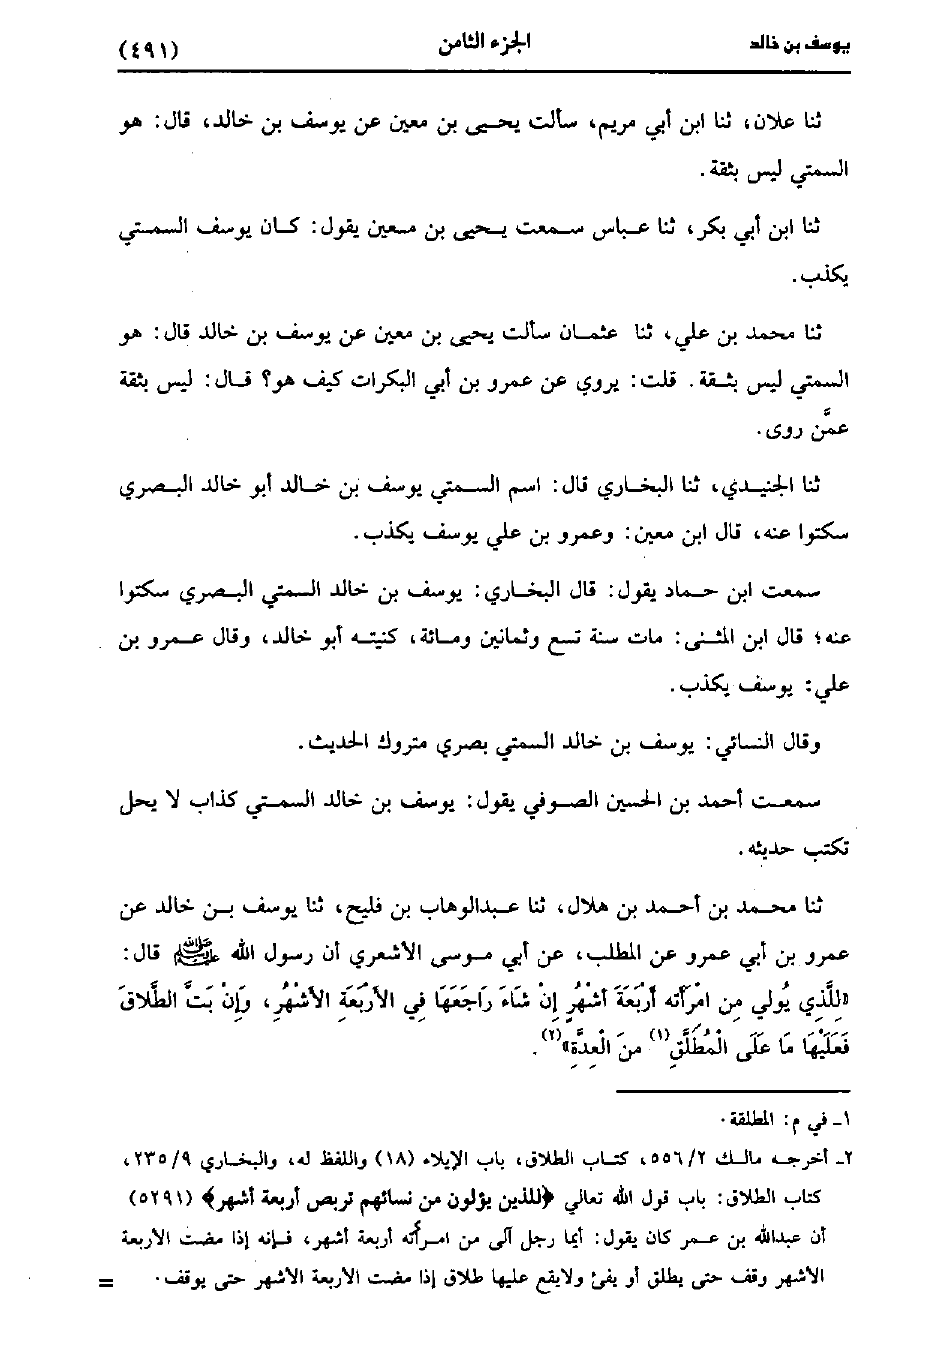 يوسف بن خالد الجزء الثامن (٤٩١)
ثنا علان، ثنا ابن أبي مريم، سألت يحيى بن معين عن يوسف بن خالد، قال: هو
السمتي ليس بثقة.
ثنا ابن أبي بكر، ثنا عباس سمعت يحيى بن معين يقول: كان يوسف السمتي
يكذب.
ثنا محمد بن علي، ثنا عثمان سألت يحيى بن معين عن يوسف بن خالد قال: هو
السمتي ليس بثقة. قلت: يروي عن عمرو بن أبي البكرات كيف هو؟ قال: ليس بثقة
عمَّن روى.
ثنا الجنيدي، ثنا البخاري قال: اسم السمتي يوسف بن خالد أبو خالد البصري
سكتوا عنه، قال ابن معين: وعمرو بن علي يوسف يكذب.
سمعت ابن حماد يقول: قال البخاري: يوسف بن خالد السمتي البصري سكتوا
عنه؛ قال ابن المثنى: مات سنة تسع وثمانين ومائة، كنيته أبو خالد، وقال عمرو بن
علي: يوسف يكذب.
وقال النسائي: يوسف بن خالد السمتي بصري متروك الحديث.
سمعت أحمد بن الحسين الصوفي يقول: يوسف بن خالد السمتي كذاب لا يحل
تكتب حديثه.
ثنا محمد بن أحمد بن هلال، ثنا عبدالوهاب بن فليح، ثنا يوسف بن خالد عن
عمرو بن أبي عمرو عن المطلب، عن أبي موسى الأشعري أن رسول الله ﷺ قال:
«للَّذي يُولي من امْرأته أرْبَعَةَ أشْهُرٍ إنْ شَاءَ رَاجَعَهَا في الأرْبَعَةِ الأشْهُرِ، وَإنْ بَتَّ الطَّلاقَ
فَعَلَيْهَا مَا عَلَى الْمُطَلَّقِ(١) منَ الْعِدَّةِ»(٢).
١ـ في م: المطلقة.
٢ـ أخرجه مالك ٥٥٦/٢، كتاب الطلاق، باب الإيلاء (١٨) واللفظ له، والبخاري ٢٣٥/٩،
كتاب الطلاق: باب قول الله تعالي ﴿للذين يؤلون من نسائهم تربص أربعة أشهر﴾ (٥٢٩١)
أن عبدالله بن عمر كان يقول: أيما رجل آلى من امرأته أربعة أشهر، فإنه إذا مضت الأربعة
الأشهر وقف حتى يطلق أو يفئ ولايقع عليها طلاق إذا مضت الأربعة الأشهر حتى يوقف. =